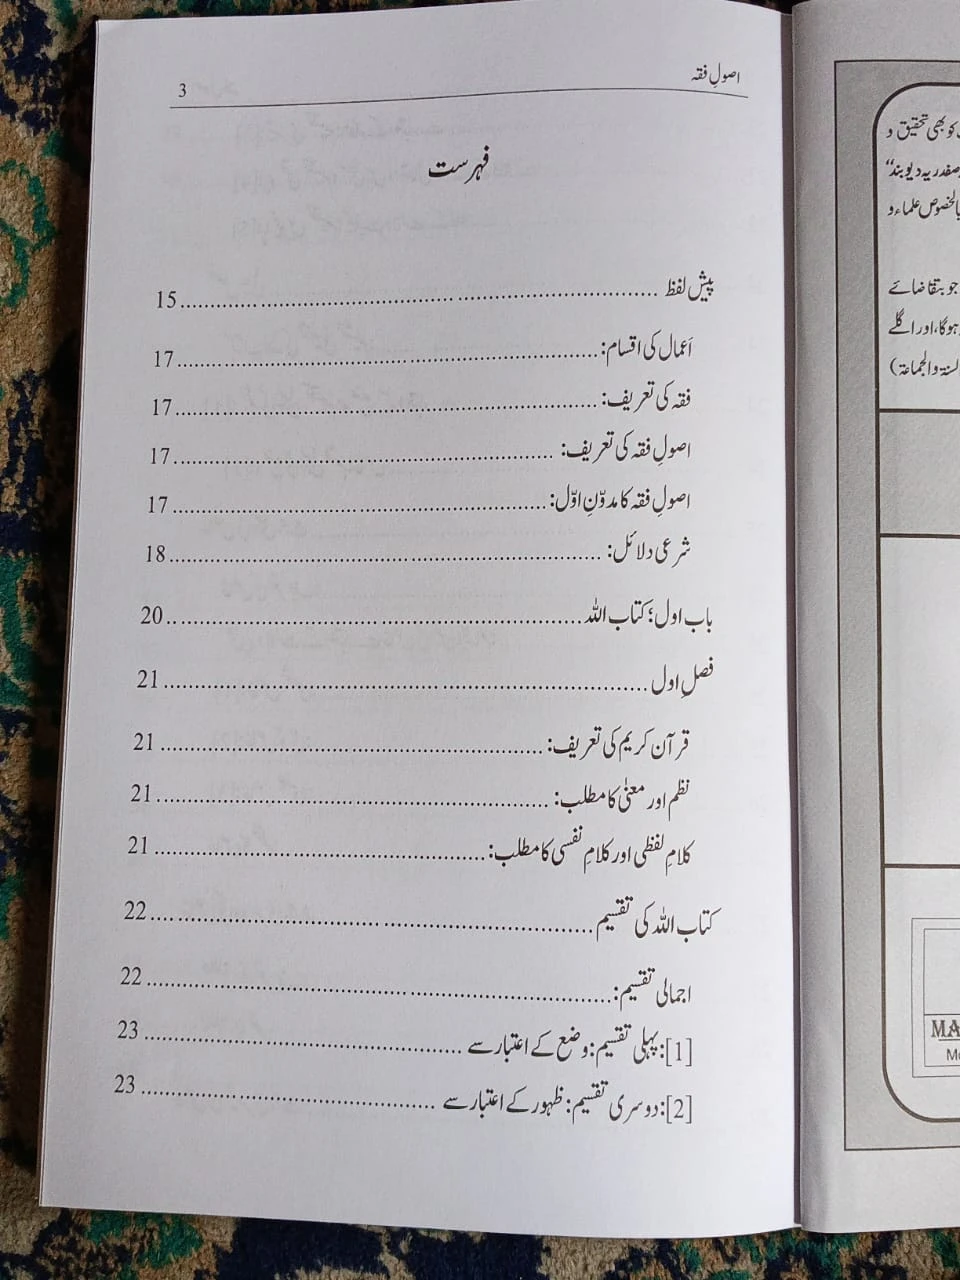 اصولِ فقہ 3
فہرست
پیش لفظ ........ 15
اَعمال کی اقسام: ........ 17
فقہ کی تعریف: ........ 17
اصولِ فقہ کی تعریف: ........ 17
اصولِ فقہ کا مدوّنِ اوّل: ........ 17
شرعی دلائل: ........ 18
باب اول؛ کتاب اللہ ........ 20
فصلِ اول ........ 21
قرآن کریم کی تعریف: ........ 21
نظم اور معنیٰ کا مطلب: ........ 21
کلامِ لفظی اور کلامِ نفسی کا مطلب: ........ 21
کتاب اللہ کی تقسیم ........ 22
اجمالی تقسیم: ........ 22
[1]: پہلی تقسیم: وضع کے اعتبار سے ........ 23
[2]: دوسری تقسیم: ظہور کے اعتبار سے ........ 23
کو بھی تحقیق و
صفدریہ دیوبند“
بالخصوص علماء و
جو بتقاضائے
ہوگا، اور اگلے
السنۃ والجماعۃ)
MA